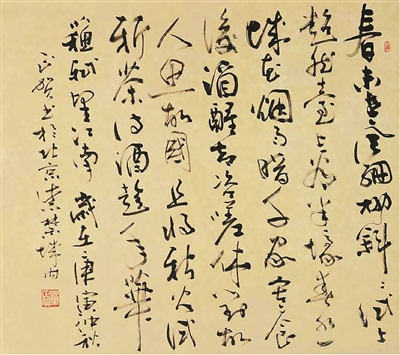 春未老風細柳斜〻試上
超然臺上看半壕春水一
城花烟雨暗千家寒食
後酒醒却咨嗟休對故
人思故國且將新火試
新茶詩酒趁年華
蘇軾望江南 歲在庚寅仲秋
賀書於北京紫禁城内